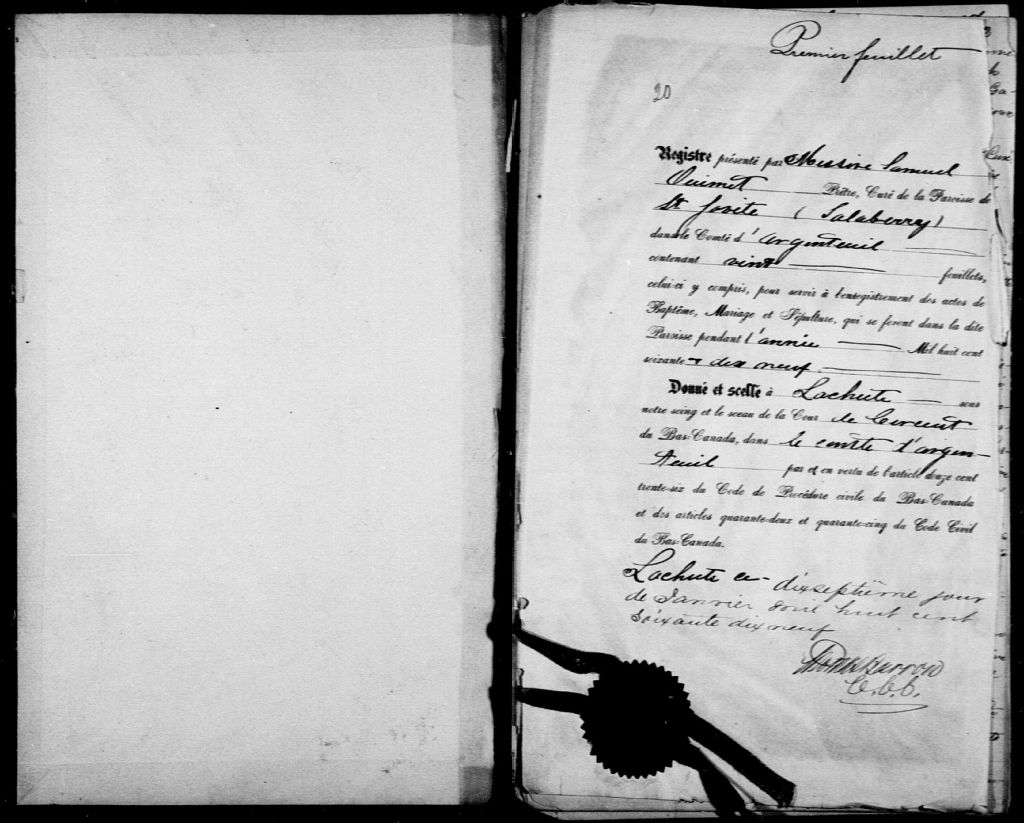 Premier feuillet
20
Registre présenté par Messire Samuel
Ouimet Prêtre, Curé de la Paroisse de
St Jovite ( Salaberry )
dans le Comté d'argenteuil
contenant vint feuillets,
celui-ci y compris, pour servir à l'enregistrement des actes de
Baptême, Mariage et Sépulture, qui se feront dans la dite
Paroisse pendant l'année Mil huit cent
soixante + dix neuf.
Donné et scellé à Lachute sous
notre seing et le sceau de la Cour de Circuit
du Bas-Canada, dans le comté d'argen-
teuil par et en vertu de l'article douze cent
trente-six du Code de Procédure civile du Bas-Canada
et des articles quarante-deux et quarante-cinq du Code Civil
du Bas-Canada.
Lachute ce dixseptième jour
de Janvier huit cent
soixante dix neuf
Barron
C.C.C.